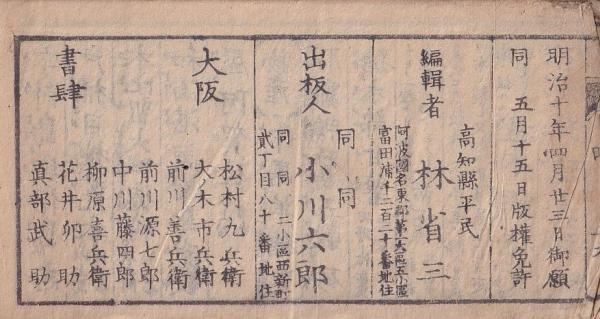 明治十年四月廿三日御願
同 五月十五日版權免許
高知縣平民
編輯者 林省三
阿波國名東郡第一大區五小區
富田浦千二百二十番地住
同 同
出板人 小川六郎
同 同 二小區西新町
貳丁目八十番地住
大阪
書肆
松村九兵衛
大ノ木市兵衛
前川善兵衛
前川源七郎
中川藤四郎
柳原喜兵衛
花井卯助
真部武助